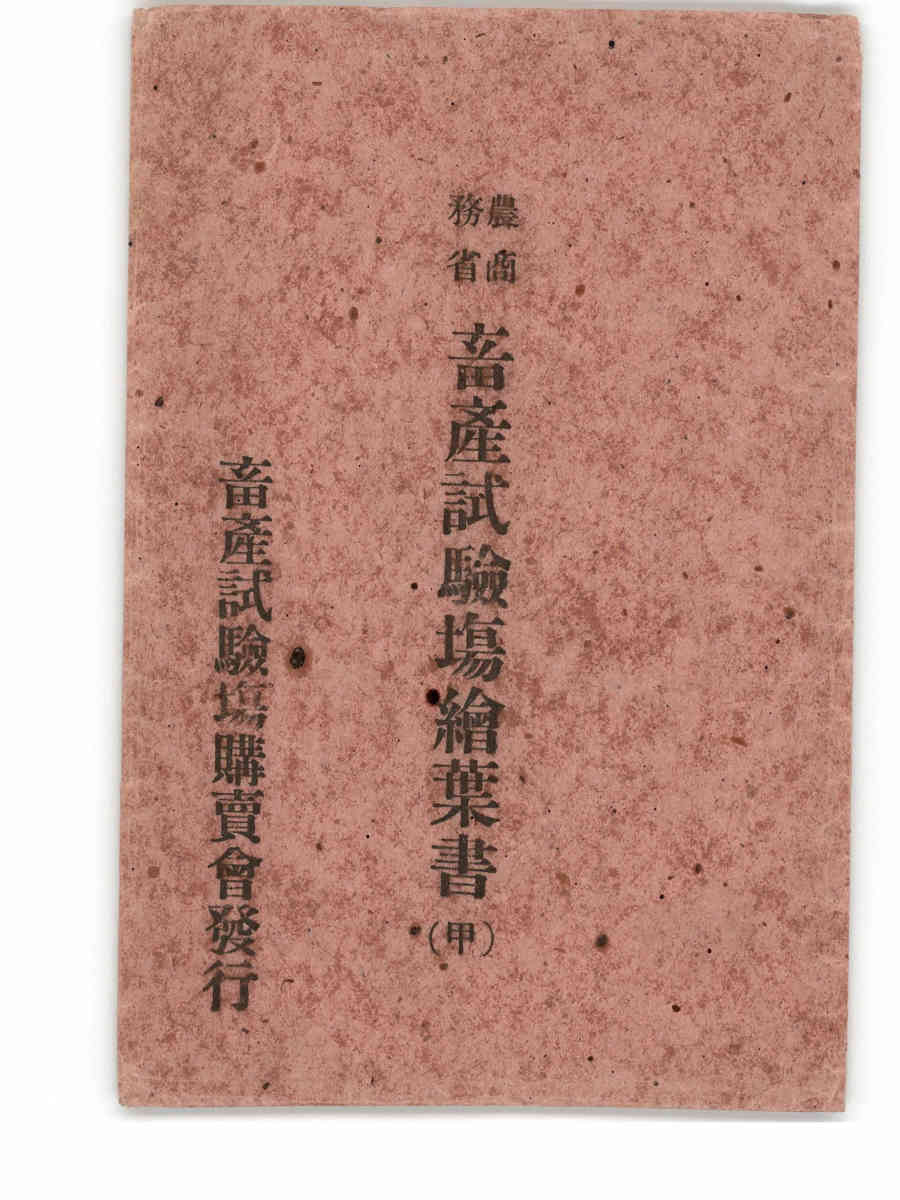 農商
務省
畜產試驗塲繪葉書(甲)
畜產試驗塲購賣會發行